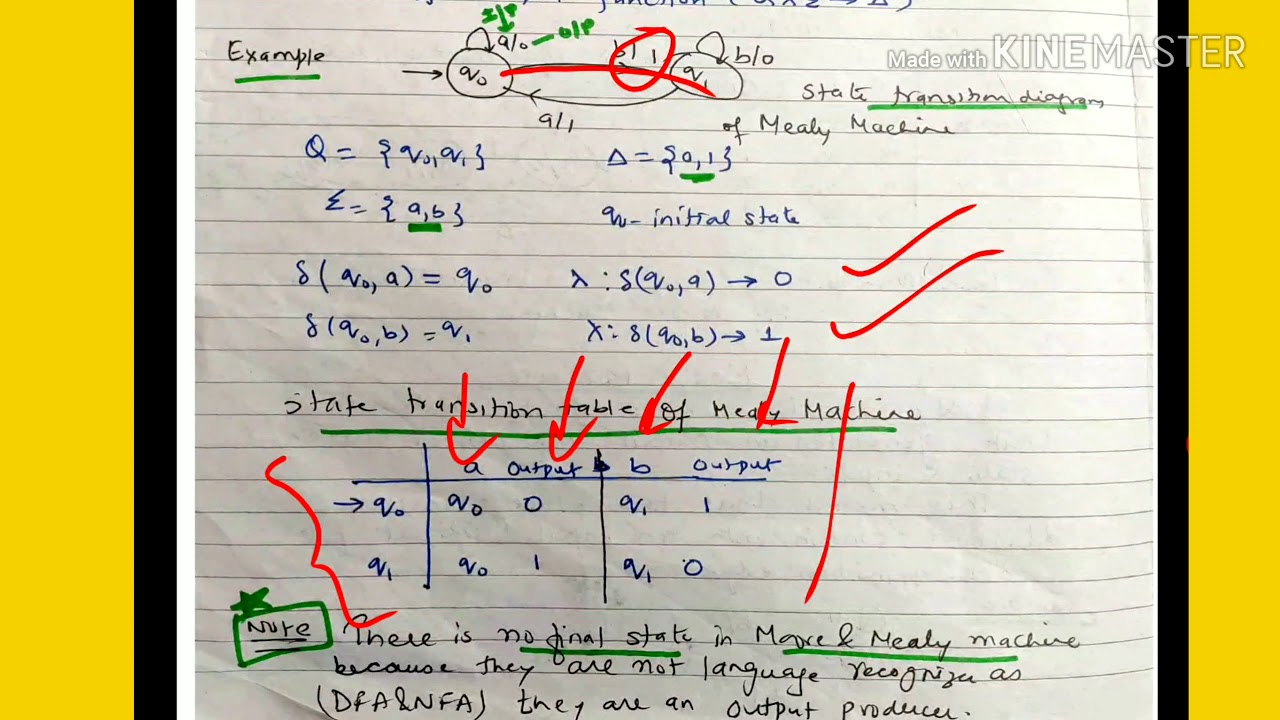 function (Q × Σ → Δ)
I/P
Example
a/0 — O/P
b/1
b/0
Made with KINEMASTER
q0
q1
State transition diagram
a/1
of Mealy Machine
Q = {q0, q1}
Δ = {0,1}
Σ = {a,b}
q0 - initial state
δ(q0, a) = q0
λ : δ(q0, a) → 0
δ(q0, b) = q1
λ : δ(q0, b) → 1
State transition table of Mealy Machine
a output b output
→ q0 q0 0 q1 1
q1 q0 1 q1 0
Note There is no final state in Moore & Mealy machine
because they are not language recognizer as
(DFA & NFA) they are an output producer.